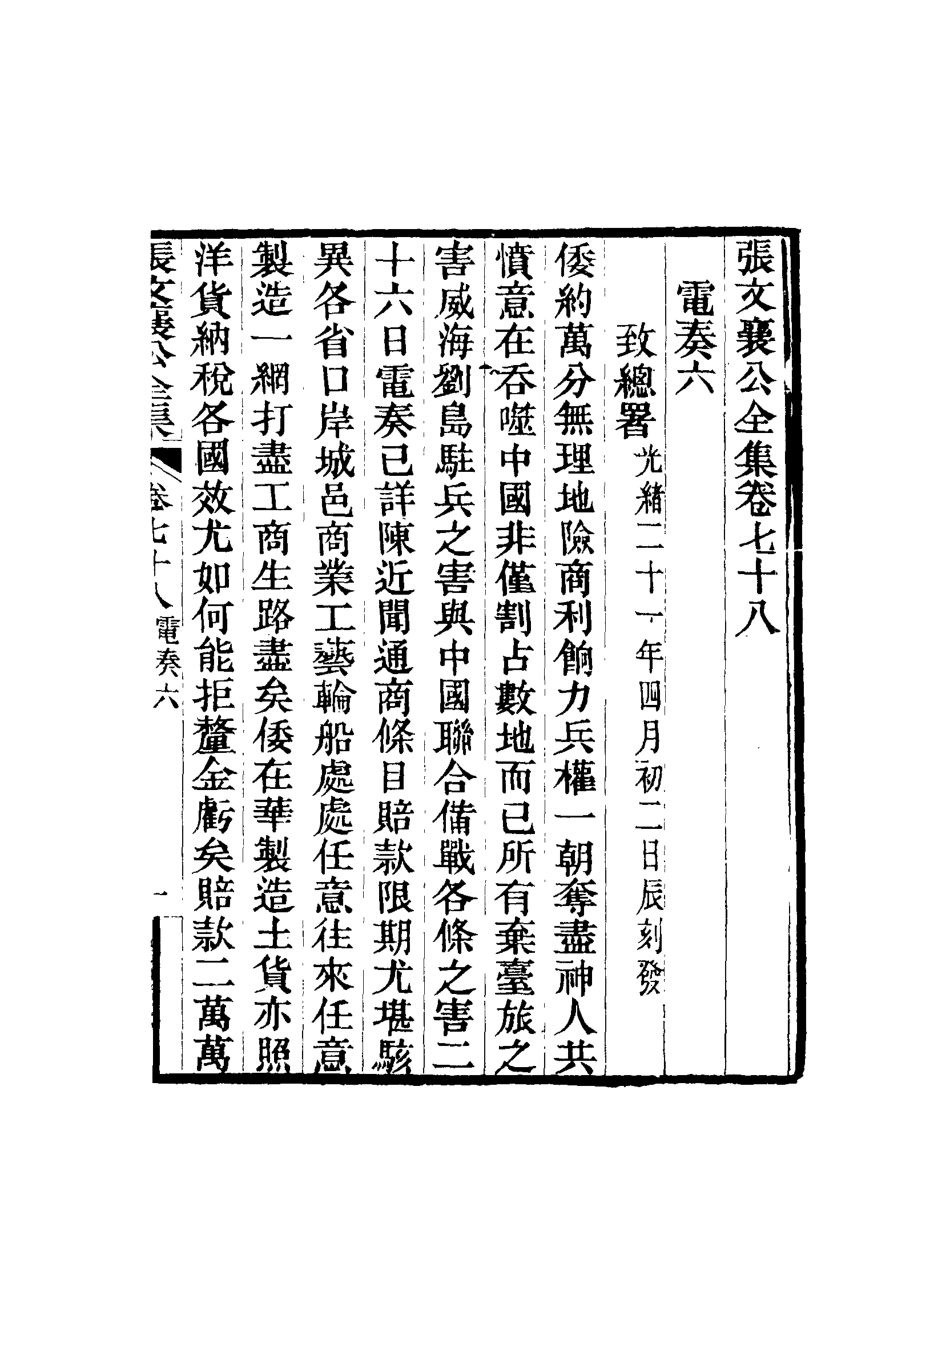 張文襄公全集卷七十八
電奏六
致總署光緒二十一年四月初二日辰刻發
倭約萬分無理地險商利餉力兵權一朝奪盡神人共
憤意在吞噬中國非僅割占數地而已所有棄臺旅之
害威海劉島駐兵之害與中國聯合備戰各條之害二
十六日電奏已詳陳近聞通商條目賠款限期尤堪駭
異各省口岸城邑商業工藝輪船處處任意往來任意
製造一網打盡工商生路盡矣倭在華製造土貨亦照
洋貨納稅各國效尤如何能拒釐金虧矣賠款二萬萬
張文襄公全集 卷七十八 電奏六 一